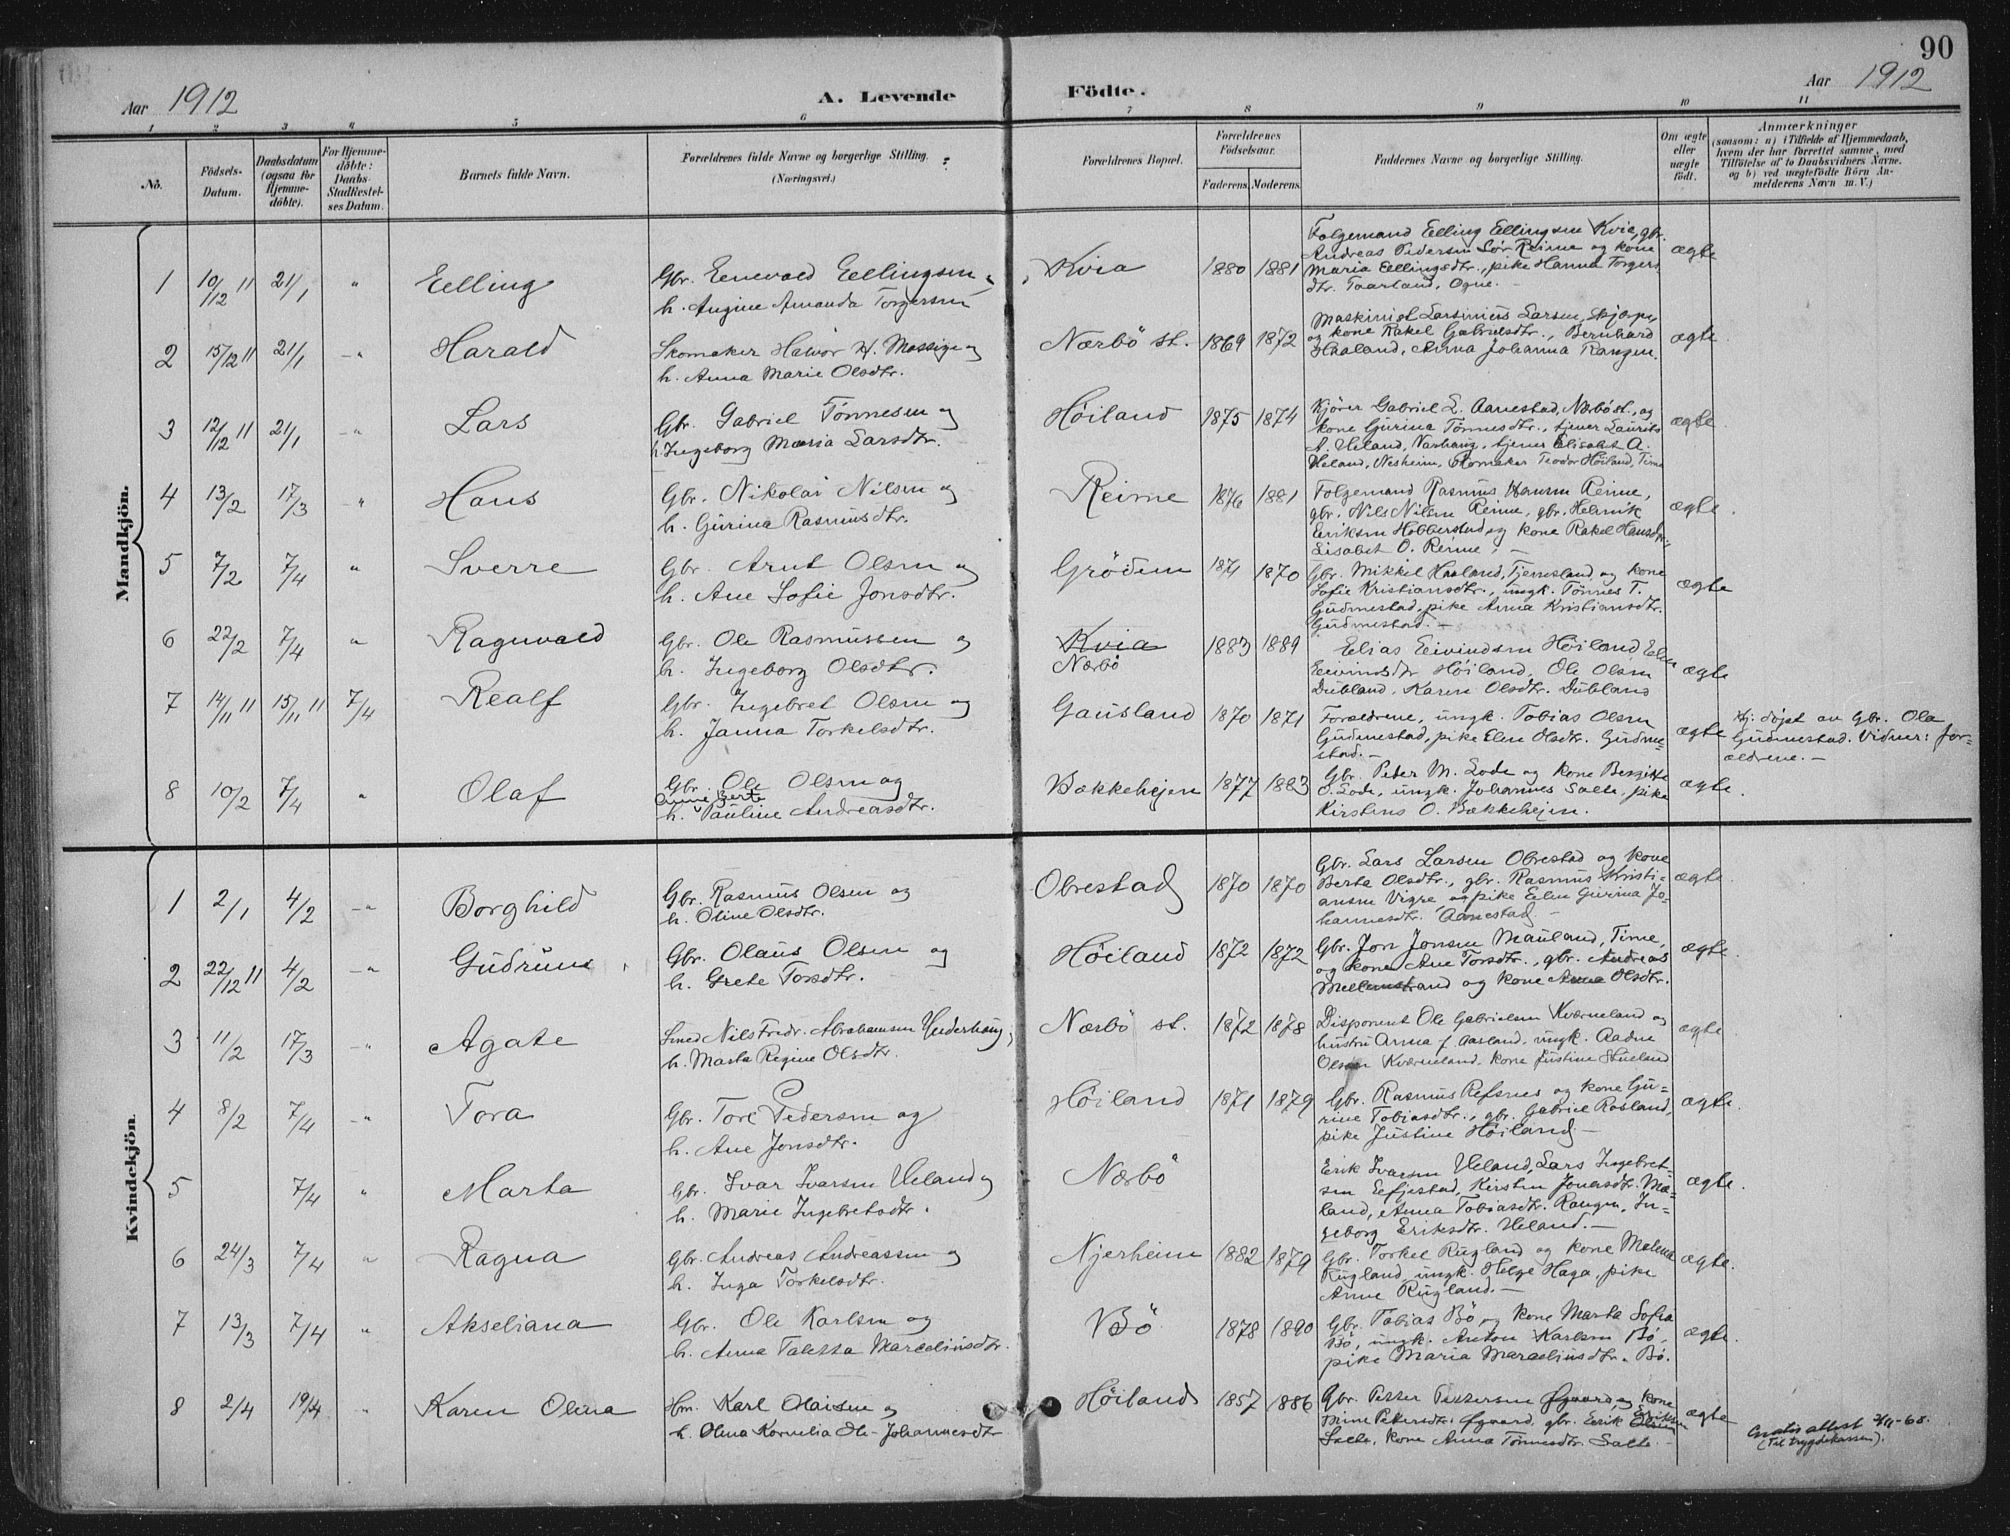 90
Aar 1912
A. Levende
Födte.
Aar 1912
1 2 3 4 5 6 7 8 9 10 11
No.
Födsels-
Datum.
Daabsdatum
(ogsaa for
Hjemme-
döbte).
For Hjemme-
döbte:
Daabs-
Stadfæstel-
ses Datum.
Barnets fulde Navn.
Forældrenes fulde Navne og borgerlige Stilling.
(Næringsvei.)
Forældrenes Bopæl.
Forældrenes
Födselsaar.
Faderens. Moderens.
Faddernes Navne og borgerlige Stilling.
Om ægte
eller
uægte
födt.
Anmærkninger
(saasom: a) i Tilfælde af Hjemmedaab,
hvem der har forrettet samme, med
Tilföielse af to Daabsvidners Navne.
og b) ved uægtefödte Börn An-
melderens Navn m. V.)
Mandkjön.
1 10/12 11 21/1 " Eelling
Gbr. Enevald Eellingsen
h. Angine Amanda Torgersen
Kvia 1880 1881
Folgemand Eelling Ellingsen Kvia, gbr.
Andreas Pedersen Sör Reime og kone
Maria Eellingsdtr., pike Hanna Torgers
dtr. Taarland, Ogne.
ægte
2 15/12 11 21/1 -" Harald
Skomaker Halvor H. Mossige og
h. Anna Marie Olsdtr.
Nærbö st. 1869 1872
Maskinist Larsinius Larsen,
og kone Rakel Gabrielsdtr., Bernhard
Haaland, Anna Johanna Rangen.
ægte
3 12/12 11 21/1 -" Lars
Gbr. Gabriel Tönnesen og
h. Ingeborg Maria Larsdtr.
Höiland 1875 1874
Kjörer Gabriel L. Aanestad, Nærbö st., og
kone Gurina Tönnesdtr., tjener Laurits
A. Ueland, tjener Elisabet A.
Ueland, Nesheim, Skomaker Teodor Höiland, Time
ægte
4 13/2 17/3 -" Hans
Gbr. Nikolai Nilsen og
h. Gurina Rasmusdtr.
Reime 1876 1881
Folgemand Rasmus Hansen Reime,
gbr. Nils Nilsen Reime, gbr. Helmik
Eeriksen Hobberstad og kone Rakel Hansdtr,
Lisabet O. Reime, -
ægte
5 7/2 7/4 " Sverre
Gbr. Arnt Olsen og
h. Ane Sofie Jonsdtr.
Grödem 1871 1870
Gbr. Mikkel Haaland, og kone
Sofie Kristiansdtr., ungk. Tönnes T.
Gudmestad, pike Anna Kristiansdtr.
Gudmestad. -
ægte
6 22/2 7/4 " Ragnvald
Gbr. Ole Rasmussen og
h. Ingeborg Olsdtr.
Kvia
Nærbö 1883 1889
Elias Eivindsen Höiland, Elen
Eeivindsdtr Höiland, Ole Olsen
Dubland, Karen Olsdtr. Dubland
ægte
7 14/11 11 15/11 11 7/4 Realf
Gbr. Ingebret Olsen og
h. Janna Torkelsdtr.
Gausland 1870 1871
Foræeldrene, ungk. Tobias Olsen
Gudmestad, pike Elen Olsdtr. Gudme-
stad. -
ægte
Hj. döpt av Gbr. Ola
Gudmestad. Vidner: for-
ældrene. -
8 10/2 7/4 " Olaf
Gbr. Ole Olsen og
Anne Berte
h. Pauline Andreasdtr.
Bækkehejen 1877 1883
Gbr. Peter M. Lode og kone Bergitte
O. Lode, ungk. Johannes Salte, pike
Kirstens O. Bækkehejen.
ægte.
Kvindekjön.
1 2/1 4/2 -" Borghild
Gbr. Rasmus Olsen og
h. Oline Olsdtr.
Obrestad 1870 1870
Gbr. Lars Larsen Obrestad og kone
Berta Olsdtr., gbr. Rasmus Kristi-
ansen Vigre, og pike Elen Gurina Jo-
hannesdtr. Aanestad -
ægte
2 22/12 11 4/2 -" Gudrun
Gbr. Olaus Olsen og
h. Grete Torsdtr.
Höiland 1872 1872
Gbr. Jon Jonsen Mauland, Time,
og kone Ane Torsdtr., gbr. Andreas
Mellemstrand og kone Anna Olsdtr.
ægte
3 11/2 17/3 -" Agate
Smed Nils Fredr. Abrahamsen Underhaug,
h. Marta Regine Olsdtr.
Nærbö st. 1872 1878
Disponent Ole Gabrielsen Kværneland og
hustru Anna f. Aasland. ungk. Aadne
Olsen Kværneland. kone Justine Stueland
ægte
4 8/2 7/4 -" Tora
Gbr. Torl Pedersen og
h. Ane Jonsdtr.
Höiland 1871 1879
Gbr. Rasmus Refsnes og kone Gu-
rine Tobiasdtr., gbr. Gabriel Rosland,
pike Justine Höiland -
ægte.
5 7/4 " Marta
Gbr. Ivar Ivarsen Ueland og
h. Marie Ingebretsdtr.
Nærbö
Erik Ivarsen Ueland, Lars Ingebret-
sen Eefjestad, Kirsten Jonasdtr. Mæ-
land, Anna Tobiasdtr. Rangen, In-
geborg Eriksdtr. Ueland. -
ægte.
6 24/3 7/4 " Ragna
Gbr. Andreas Andreassen og
h. Inga Torkelsdtr.
Njerheim 1882 1879
Gbr. Torkel Rugland og kone Malena
Rugland, ungk. Helge Haga, pike
Anne Rugland. -
ægte.
7 13/3 7/4 " Akseliana
Gbr. Ole Karlsen og
h. Anna Taletta Marceliusdtr.
Bö 1878 1890
Gbr. Tobias Bö og kone Marta Sofia
Bö, ungk. Anton Karlsen Bö,
pike Maria Marceliusdtr. Bö.
ægte.
8 2/4 19/4 " Karen Olena
Hm. Karl Olaisen og
h. Olena Kornelia Ole-Johannesdtr
Höiland 1857 1886
Gbr. Petter Pettersen Øgaard og kone
Trine Petersdtr. Øgaard, gbr. Eerik Eriksen
Salte, kone Anna Tönnesdtr. Salte. -
ægte
Gratis attest 7/11-68.
(Til trygdekassen).